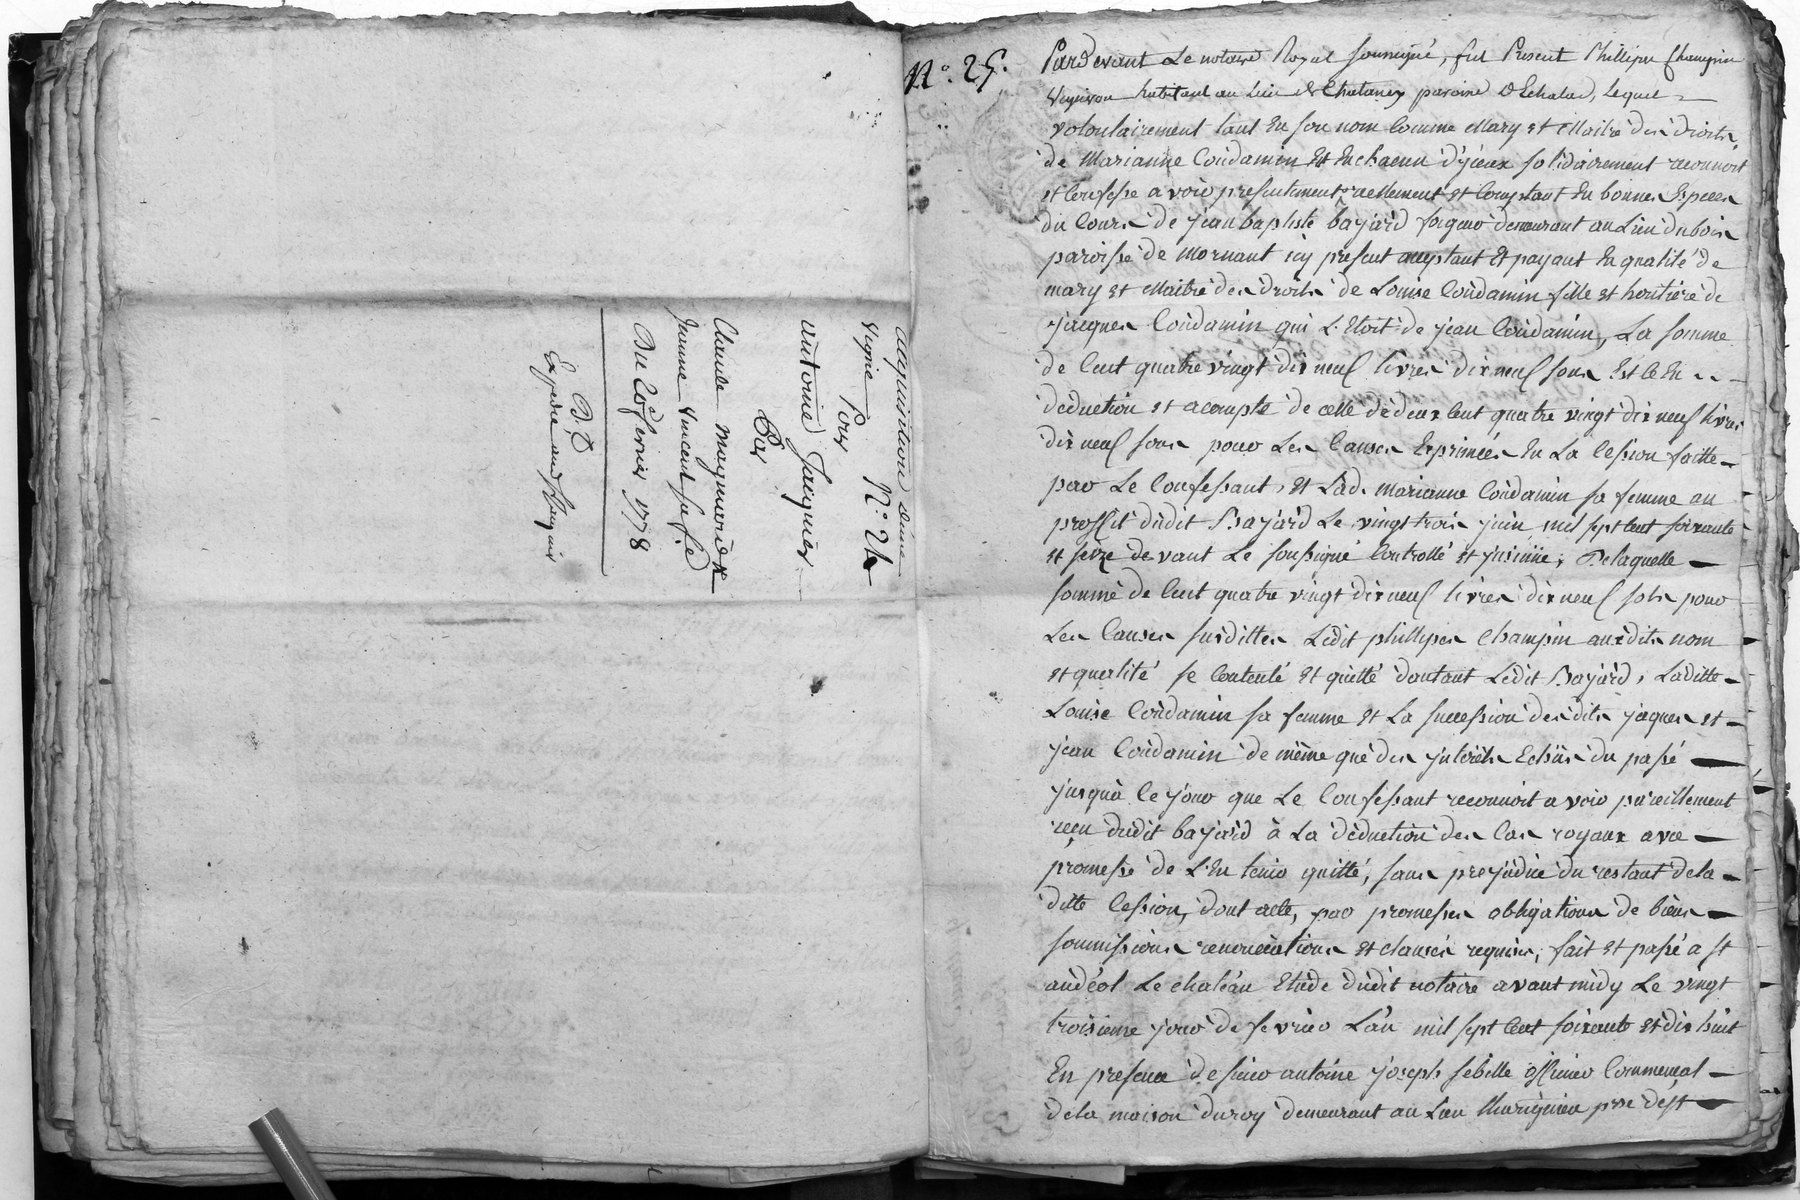 acquisition d'une
vigne N.o 24
Pour
antoine Jacquier
Par
Claude maynard et
Jeanne vincent sa fe
Du 20 fevrier 1778
B. D
N.o 25.
Pardevant Le notaire Royal soussigné, fut Present Phillipe Champin
vigneron habitant au Lieu de Chatanay paroisse D'Echalas, Lequel
volontairement tant En son nom Comme Mary et Maitre des droits
de Marianne Coudamin Et En chacun d'yceux solidairement reconnoit
et Confesse avoir presentement reellement et Comptant En bonnes Especes
du Cours de jean baptiste bayard demeurant au Lieu du bois
paroisse de mornant icy present acceptant Et payant En qualité de
mary et Maitre des droits de Louise Coudamin fille et heritiere de
jacques Coudamin qui L'Etoit de jean Coudamin, La somme
de Cent quatre vingt dix neuf Livres dix neuf sous Est Ce En
deduction et acompte de celle de deux Cent quatre vingt dix neuf Livres
dix neuf sous pour Les Causes Exprimées En La Cession faitte
par Le Confessant, et Lad. marianne Coudamin sa femme au
proffit dudit Bayard Le vingt trois juin mil sept Cent soixante
et seize devant Le soussigné Controllé et jnsinüé; De laquelle
somme de Cent quatre vingt dix neuf Livres dix neuf sols pour
Les Causes susdittes Ledit phillipes Champin auxdits nom
et qualité se Contente Et quitte d'autant Ledit Bayard, Laditte
Louise Coudamin sa femme et La succession desdits jacques et
jean Coudamin de même que des jnterêts Echûs du passé
jusqu'à Ce jour que Le Confessant reconnoit avoir pareillement
reçu dudit bayard à La deduction des Cas royaux avec
promesse de L'En tenir quitte, sans prejudice du restant de la
ditte Cession, dont acte, par promesses obligations de biens
soumissions renonciations et clauses requises, fait et passé a st
andéol Le chateau Etude dudit notaire avant midy Le vingt
troisieme jour de fevrier L'an mil sept Cent soixante et dix huit
En presence de sieur antoine joseph sebille officier Commensal
de la maison du roy demeurant au Lieu pssé de st